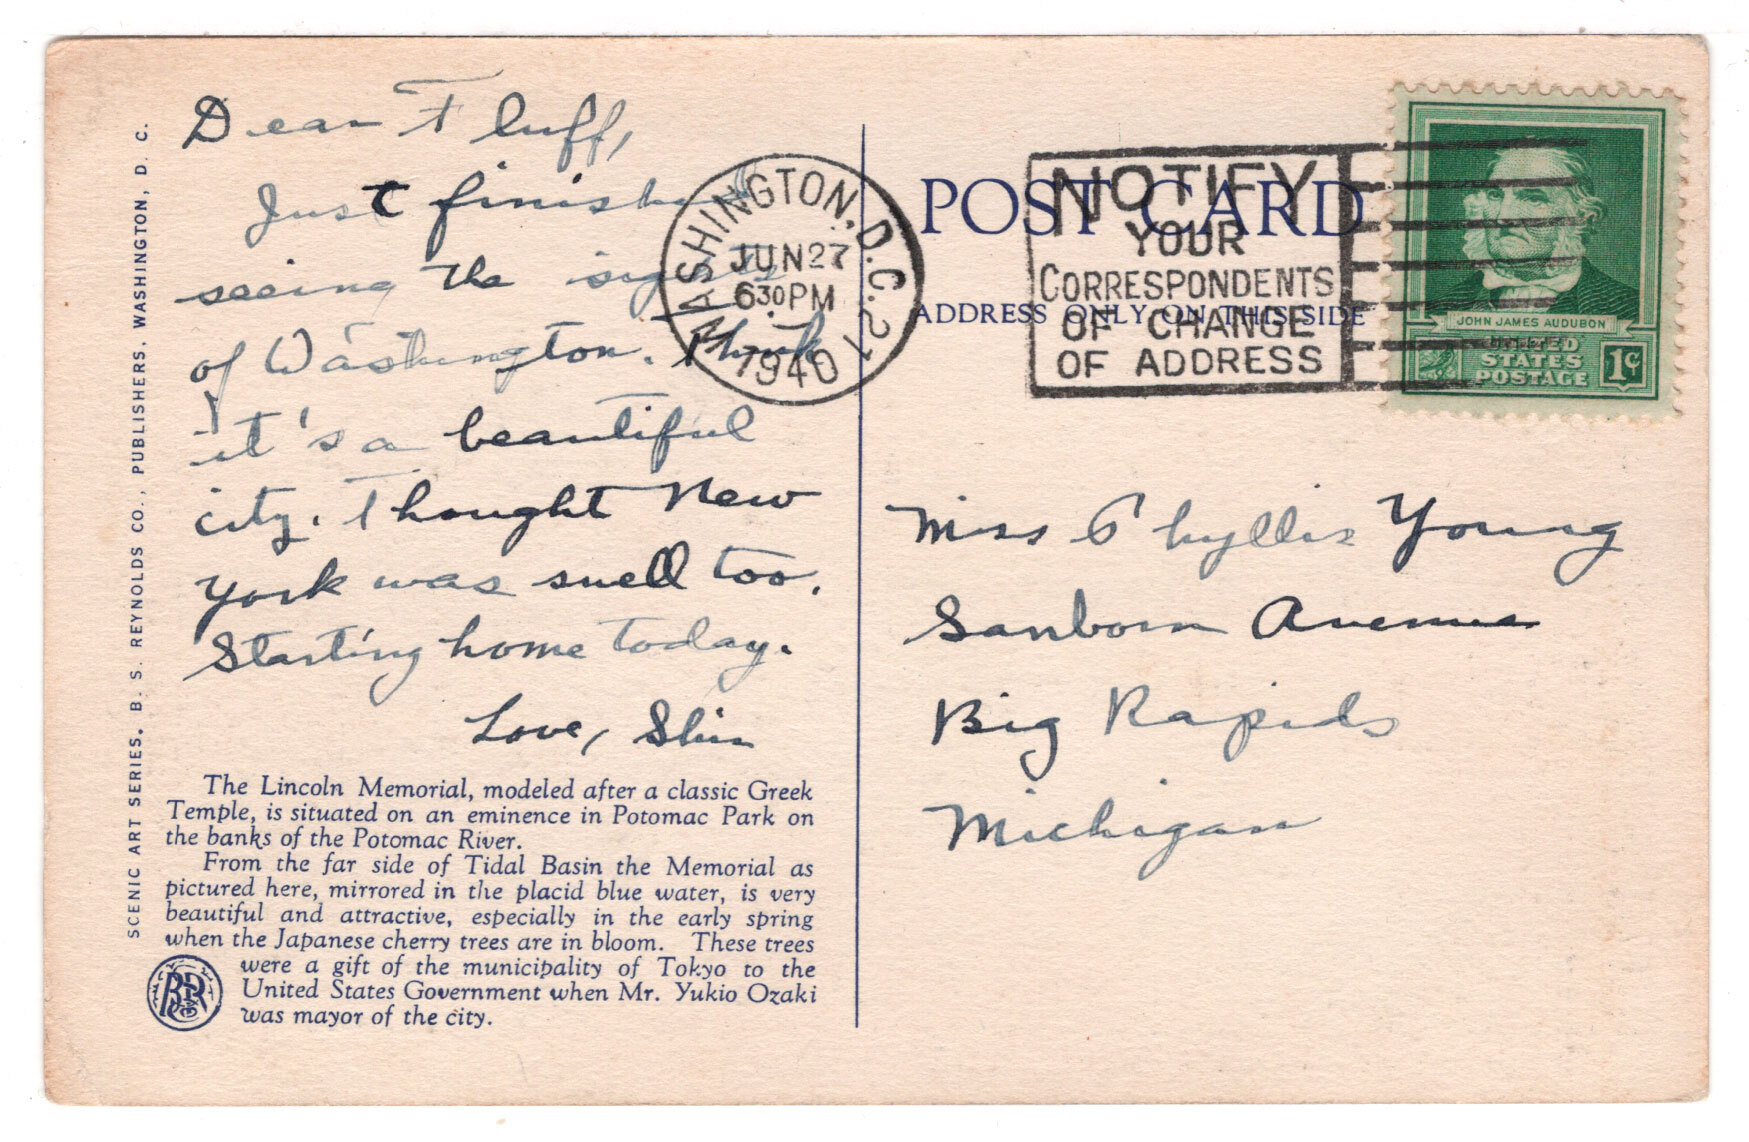 Dear Fluff,
Just finished
seeing the sights
of Washington. Think
it's a beautiful
city. Thought New
York was swell too.
Starting home today.
Love, Shir
The Lincoln Memorial, modeled after a classic Greek
Temple, is situated on an eminence in Potomac Park on
the banks of the Potomac River.
From the far side of Tidal Basin the Memorial as
pictured here, mirrored in the placid blue water, is very
beautiful and attractive, especially in the early spring
when the Japanese cherry trees are in bloom. These trees
were a gift of the municipality of Tokyo to the
United States Government when Mr. Yukio Ozaki
was mayor of the city.
SCENIC ART SERIES. B. S. REYNOLDS CO., PUBLISHERS, WASHINGTON, D. C.
WASHINGTON, D.C. 21
JUN 27
630 PM
1940
NOTIFY
YOUR
CORRESPONDENTS
OF CHANGE
OF ADDRESS
POST CARD
ADDRESS ONLY ON THIS SIDE
JOHN JAMES AUDUBON
UNITED
STATES
POSTAGE
1¢
Miss Phyllis Young
Sanborn Avenue
Big Rapids
Michigan